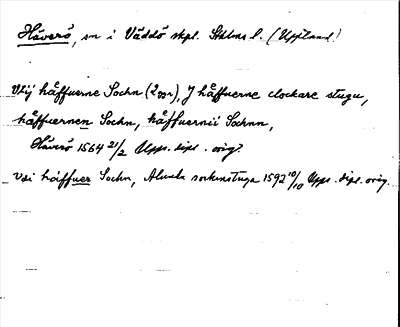 Häverö, sn i Väddö skpl. Sthlms l. (Uppland)
Vtij håffuerne Sochn (2 ggr), J håffuerne clockare stugu,
håffuernen Sochn, håffuernii Sochnn,
Häverö 1564 21/2 Upps. dipl. orig.
Vdi håffner Sochn, sochnstuga 1592 10/10 Upps. dipl. orig.